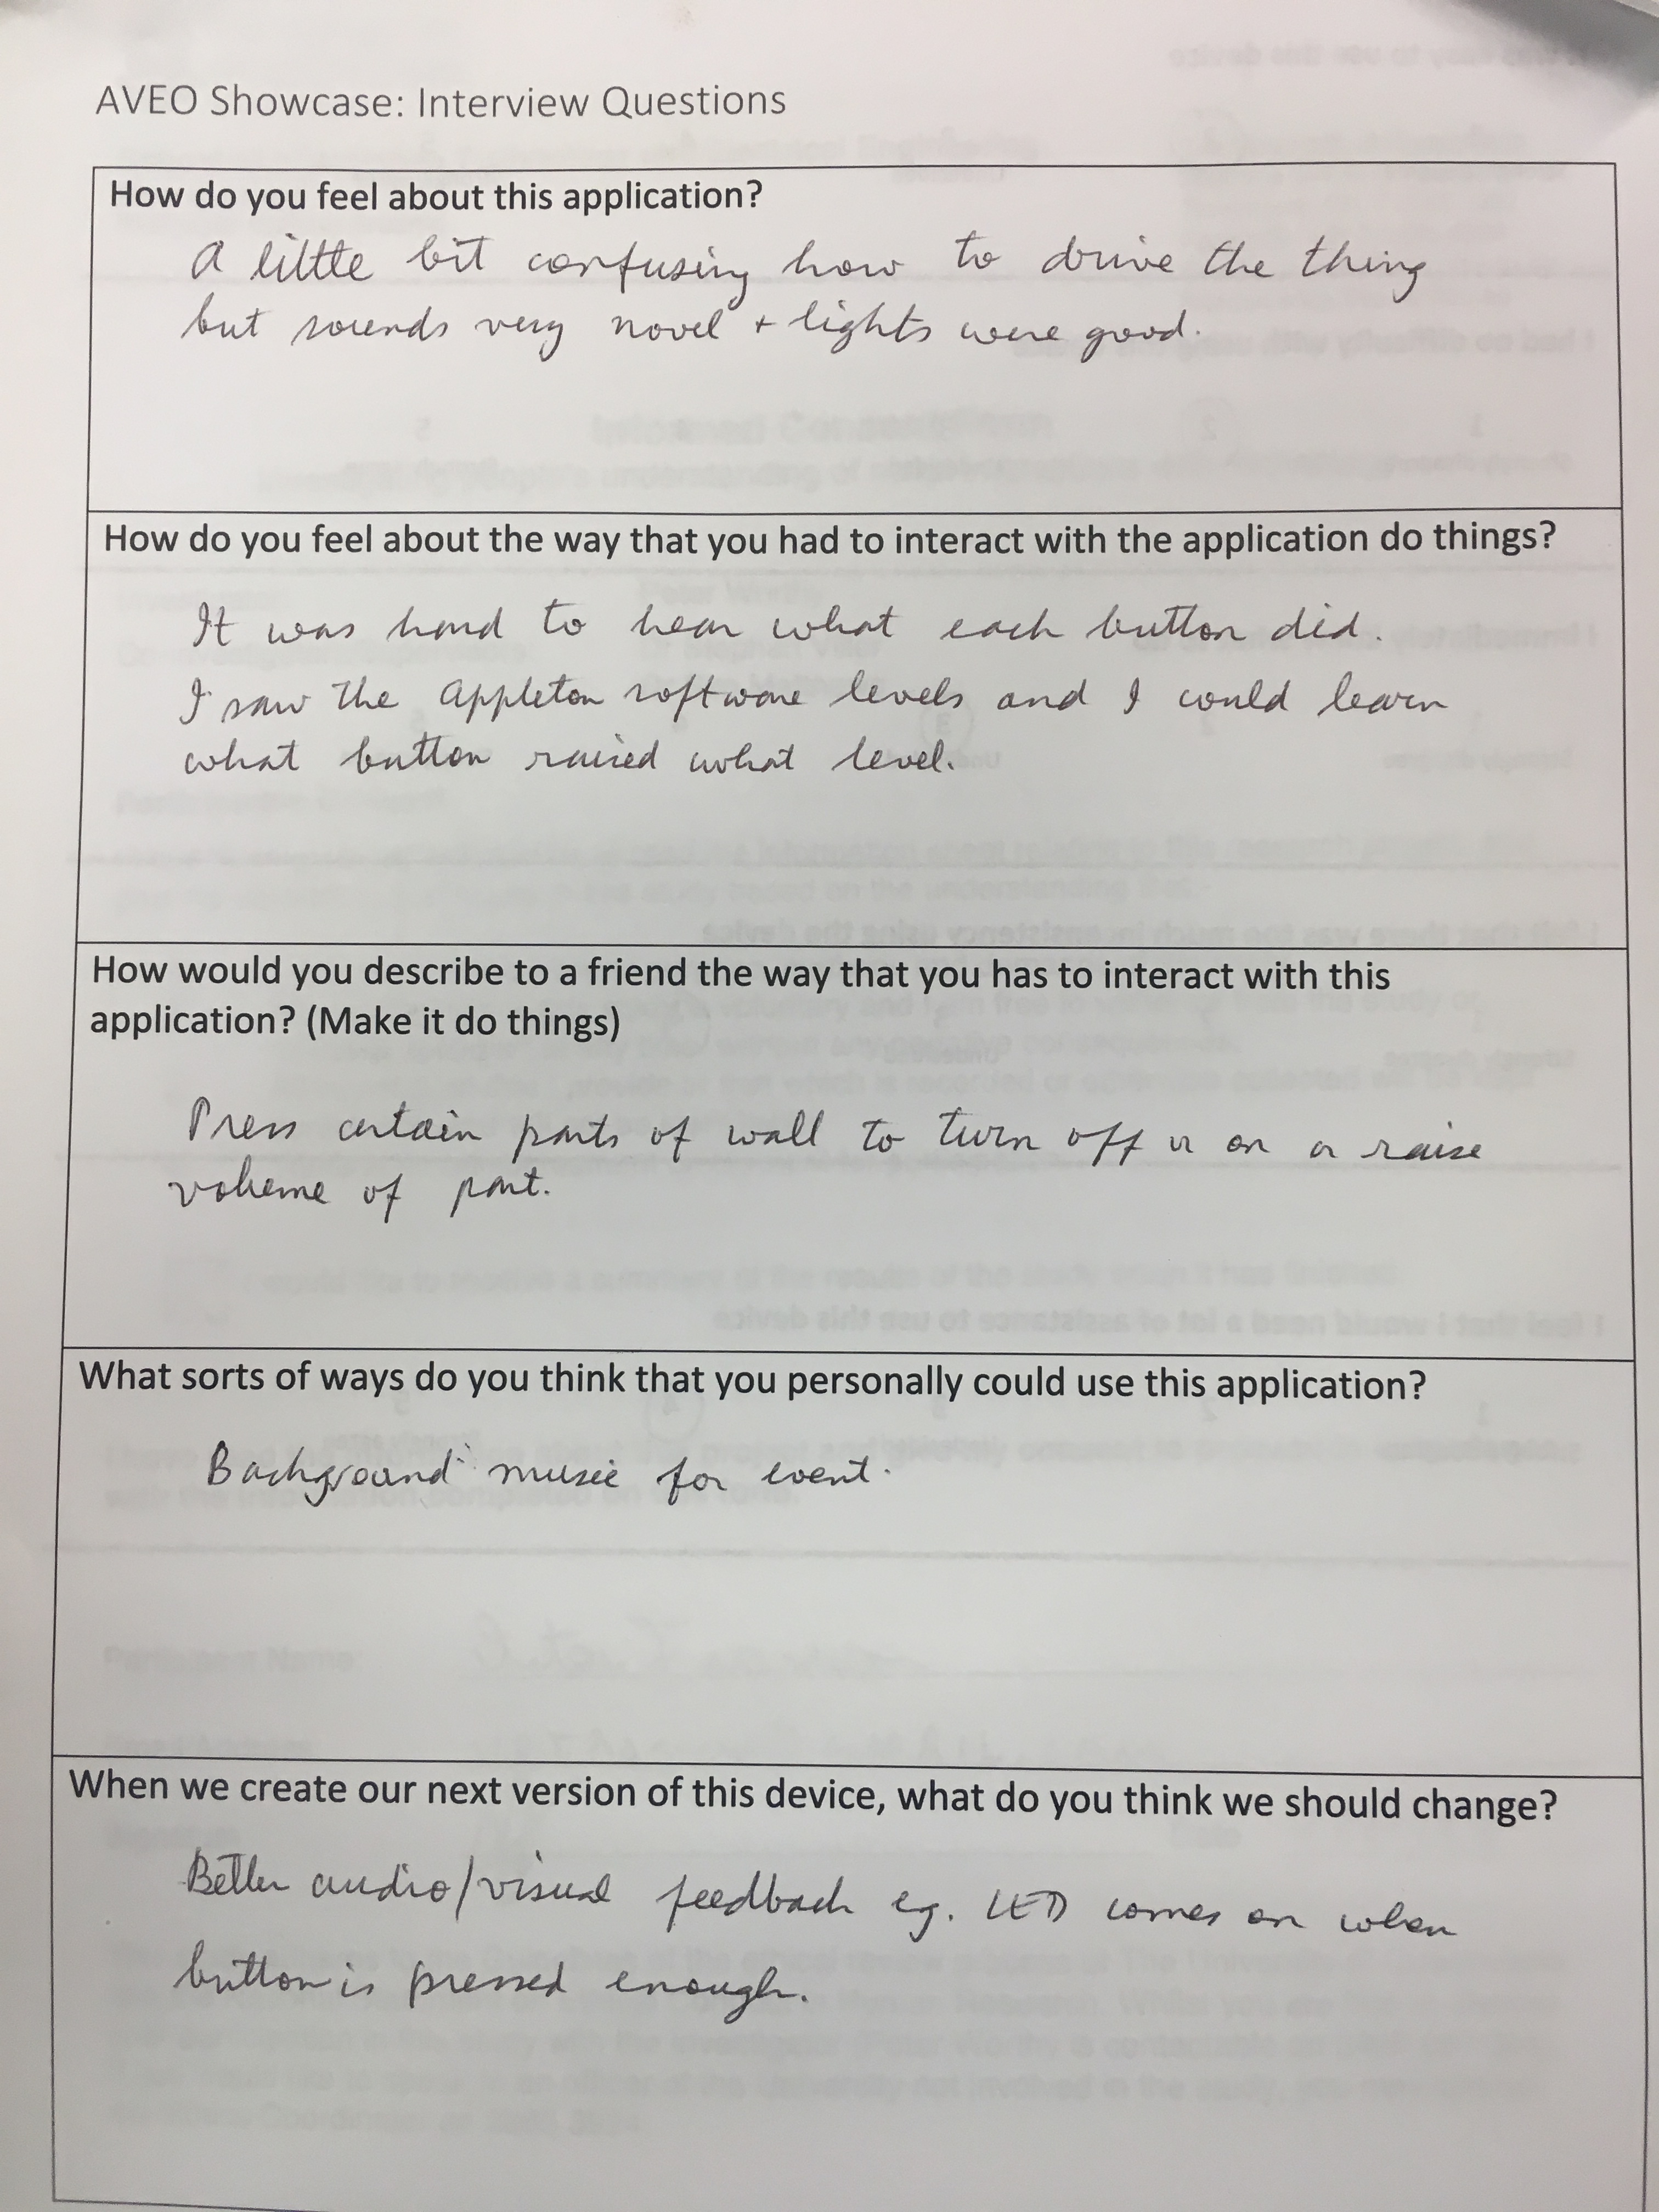 AVEO Showcase: Interview Questions
How do you feel about this application?
A little bit confusing how to drive the thing
but sounds very novel + lights were good.
How do you feel about the way that you had to interact with the application do things?
It was hard to hear what each button did.
I saw the Appleton software levels and I could learn
what button raised what level.
How would you describe to a friend the way that you has to interact with this
application? (Make it do things)
Press certain parts of wall to turn off or on or raise
volume of part.
What sorts of ways do you think that you personally could use this application?
Background music for event.
When we create our next version of this device, what do you think we should change?
Better audio/visual feedback eg. LED comes on when
button is pressed enough.